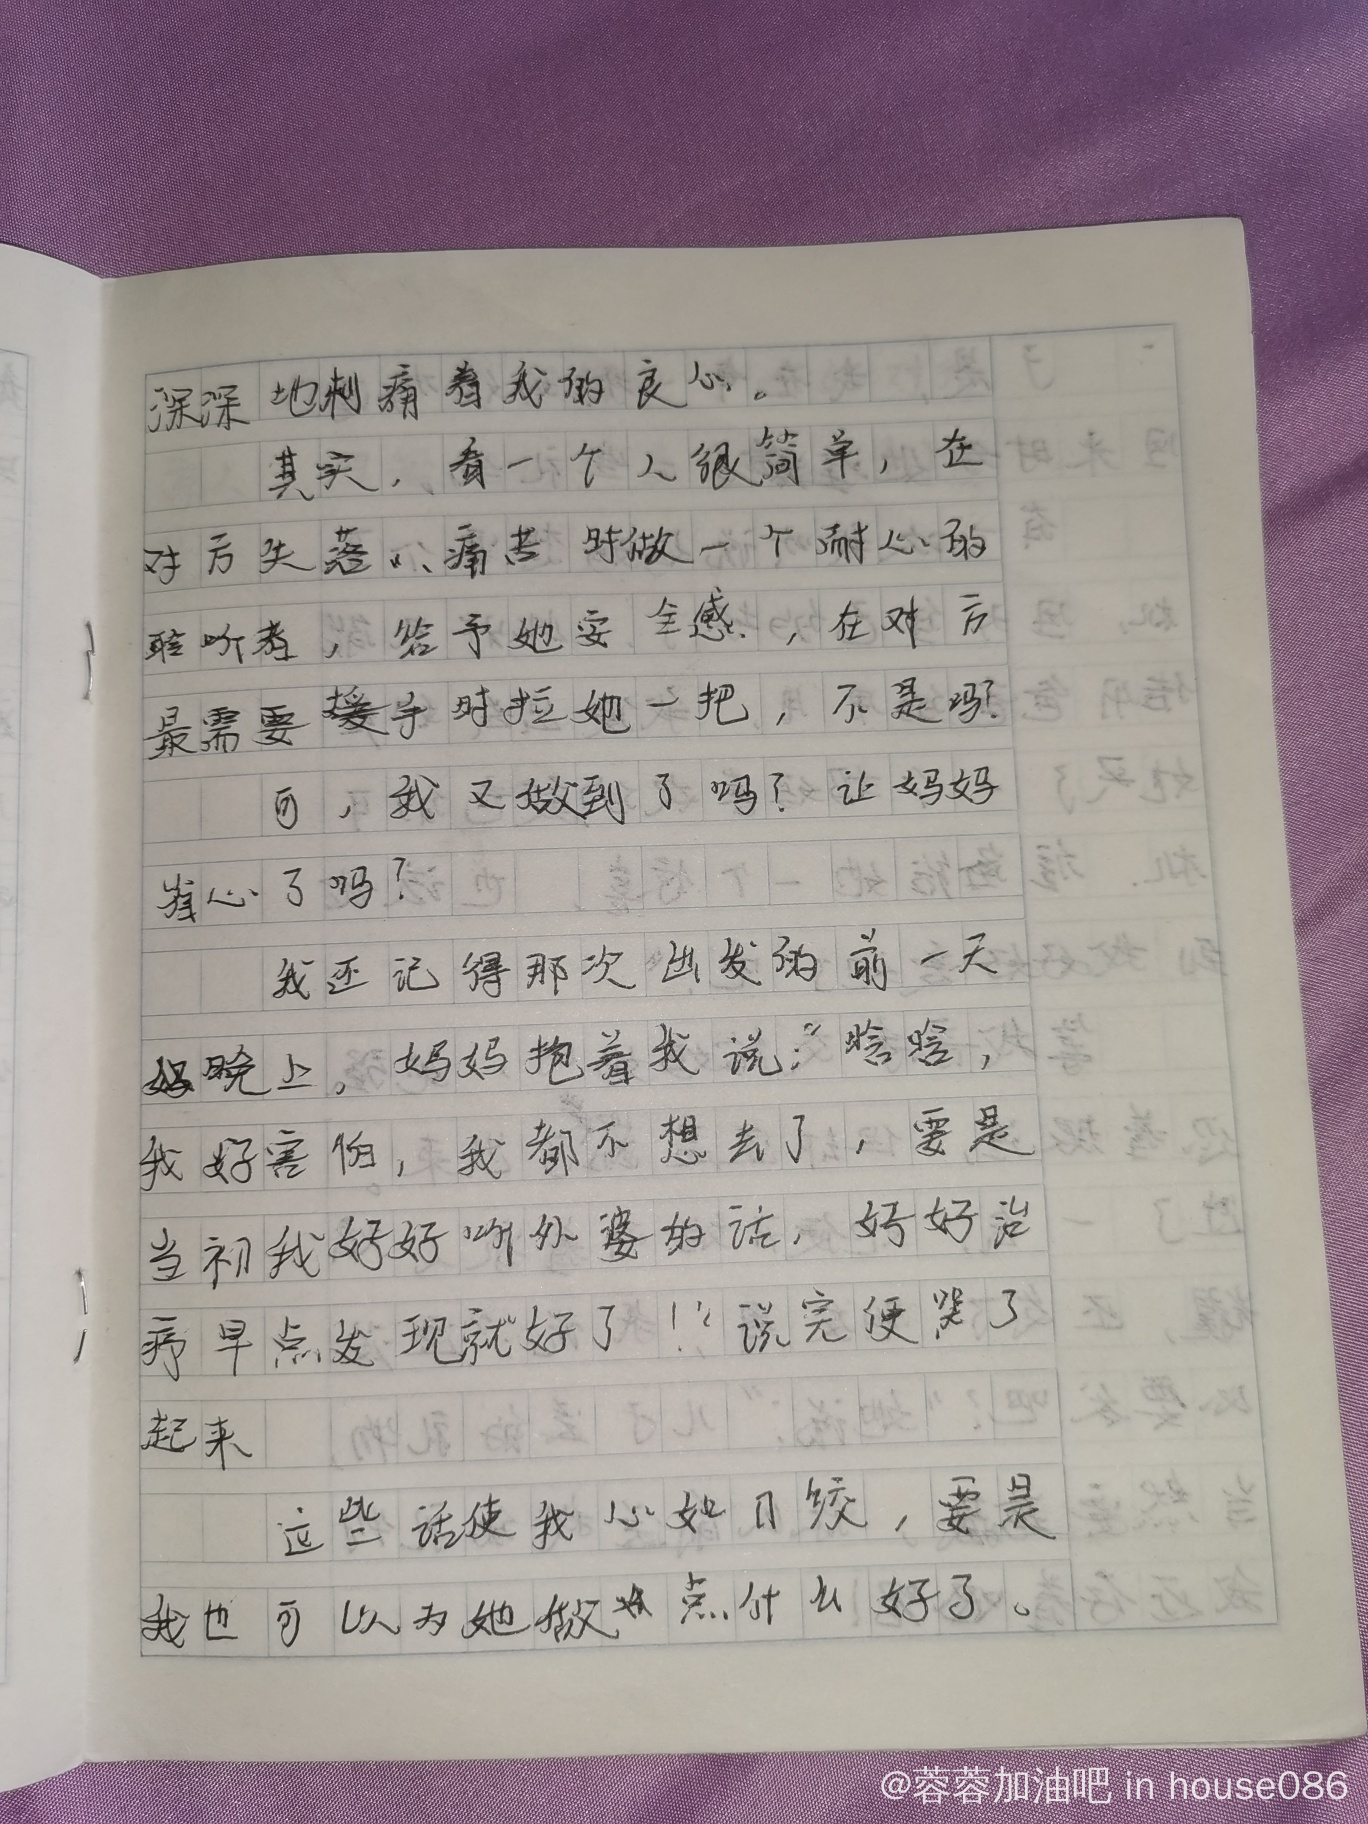 深深地刺痛着我的良心。
其实，看一个人很简单，在
对方失落、痛苦时做一个耐心的
聆听者，给予她安全感，在对方
最需要援手时拉她一把，不是吗？
可，我又做到了吗？让妈妈
省心了吗？
我还记得那次出发的前一天
晚上，妈妈抱着我说：“晗晗，
我好害怕，我都不想去了，要是
当初我好好听外婆的话，好好治
疗早点发现就好了！”说完便哭了
起来
这些话使我心如刀绞，要是
我也可以为她做点什么好了。
@蓉蓉加油吧 in house086